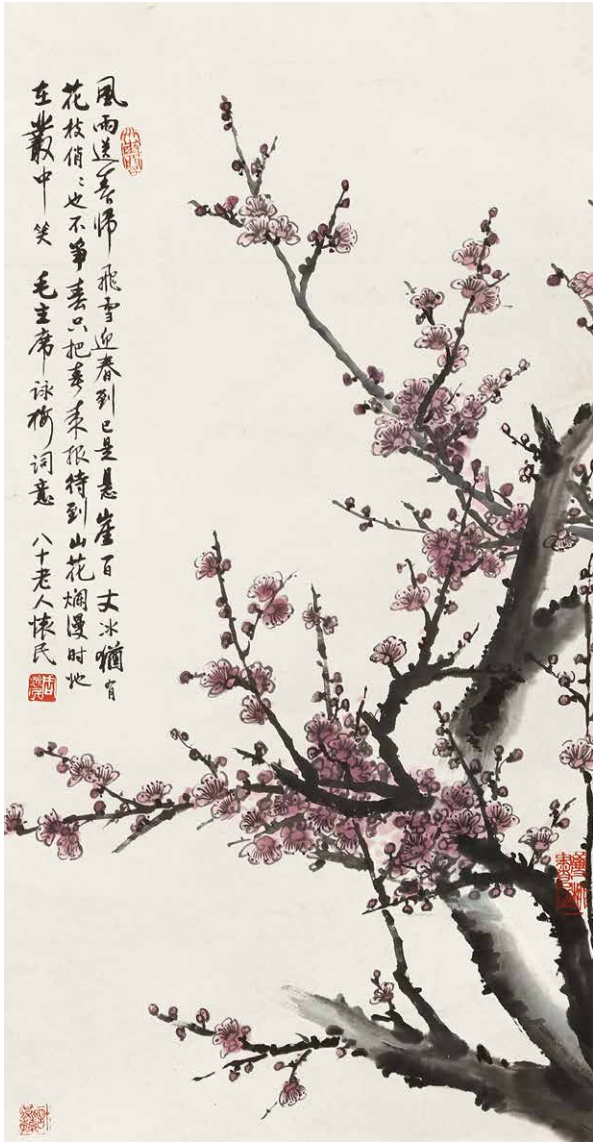 風雨送春帰飛雪迎春到已是悬崖百丈冰猶有
花枝俏〻也不爭春只把春来报待到山花烂漫时她
在叢中笑 毛主席詠梅词意 八十老人懷民